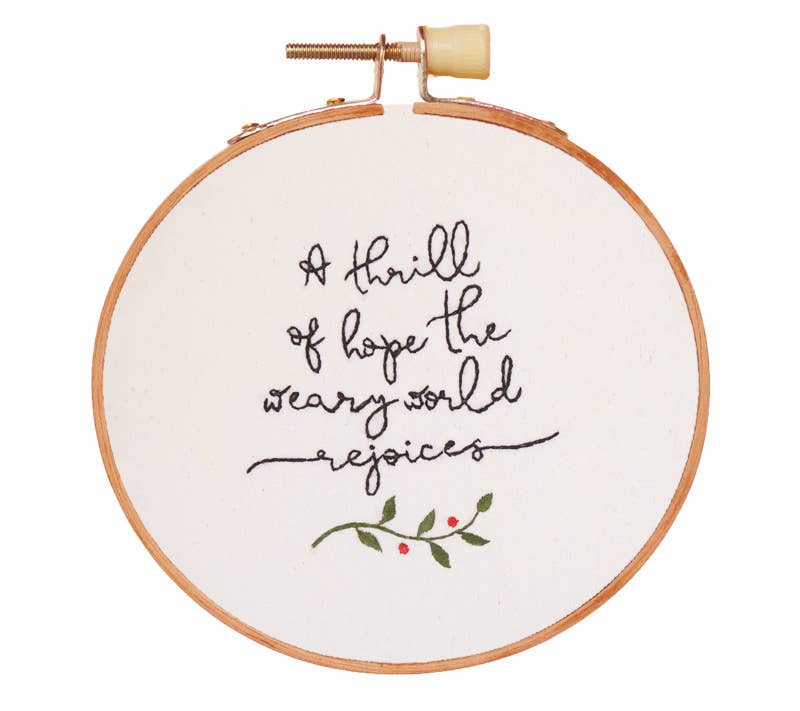 A thrill
of hope the
weary world
rejoices